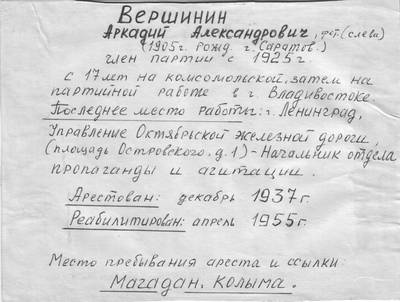 Вершинин
Аркадий Александрович, фот. (слева)
(1905г. рожд. г. Саратов.)
член партии с 1925г.
с 17 лет на комсомольской, затем на
партийной работе в г. Владивостоке.
Последнее место работы: г. Ленинград,
Управление Октябрьской железной дороги,
(площадь Островского, д. 1) – Начальник отдела
пропаганды и агитации.
Арестован: декабрь 1937г.
Реабилитирован: апрель 1955г.
Место пребывания ареста и ссылки:
Магадан. Колыма.